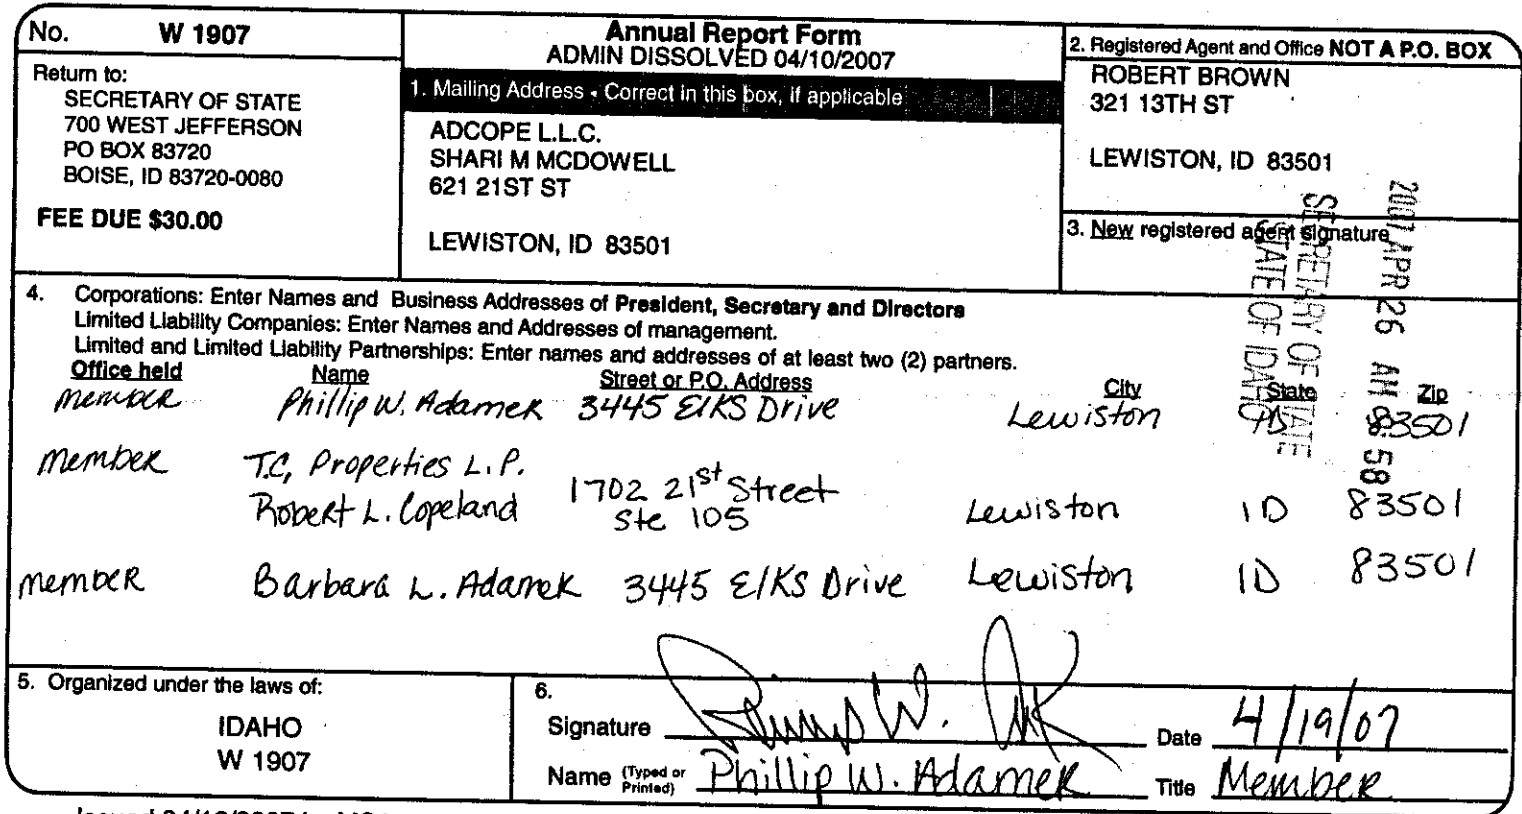 No. W 1907
Return to:
SECRETARY OF STATE
700 WEST JEFFERSON
PO BOX 83720
BOISE, ID 83720-0080
FEE DUE $30.00
Annual Report Form
ADMIN DISSOLVED 04/10/2007
1. Mailing Address - Correct in this box, if applicable
ADCOPE L.L.C.
SHARI M MCDOWELL
621 21ST ST
LEWISTON, ID 83501
2. Registered Agent and Office NOT A P.O. BOX
ROBERT BROWN
321 13TH ST
LEWISTON, ID 83501
3. New registered agent signature
2007 APR 26 AM 8:58
SECRETARY OF STATE
STATE OF IDAHO
4. Corporations: Enter Names and Business Addresses of President, Secretary and Directors
Limited Liability Companies: Enter Names and Addresses of management.
Limited and Limited Liability Partnerships: Enter names and addresses of at least two (2) partners.
Office held Name Street or P.O. Address City State Zip
member Phillip W. Adamek 3445 Elks Drive Lewiston ID 83501
member T.C, Properties L.P.
Robert L. Copeland 1702 21st Street Ste 105 Lewiston ID 83501
member Barbara L. Adamek 3445 Elks Drive Lewiston ID 83501
5. Organized under the laws of:
IDAHO
W 1907
6.
Signature Date 4/19/07
Name (Typed or Printed) Phillip W. Adamek Title Member